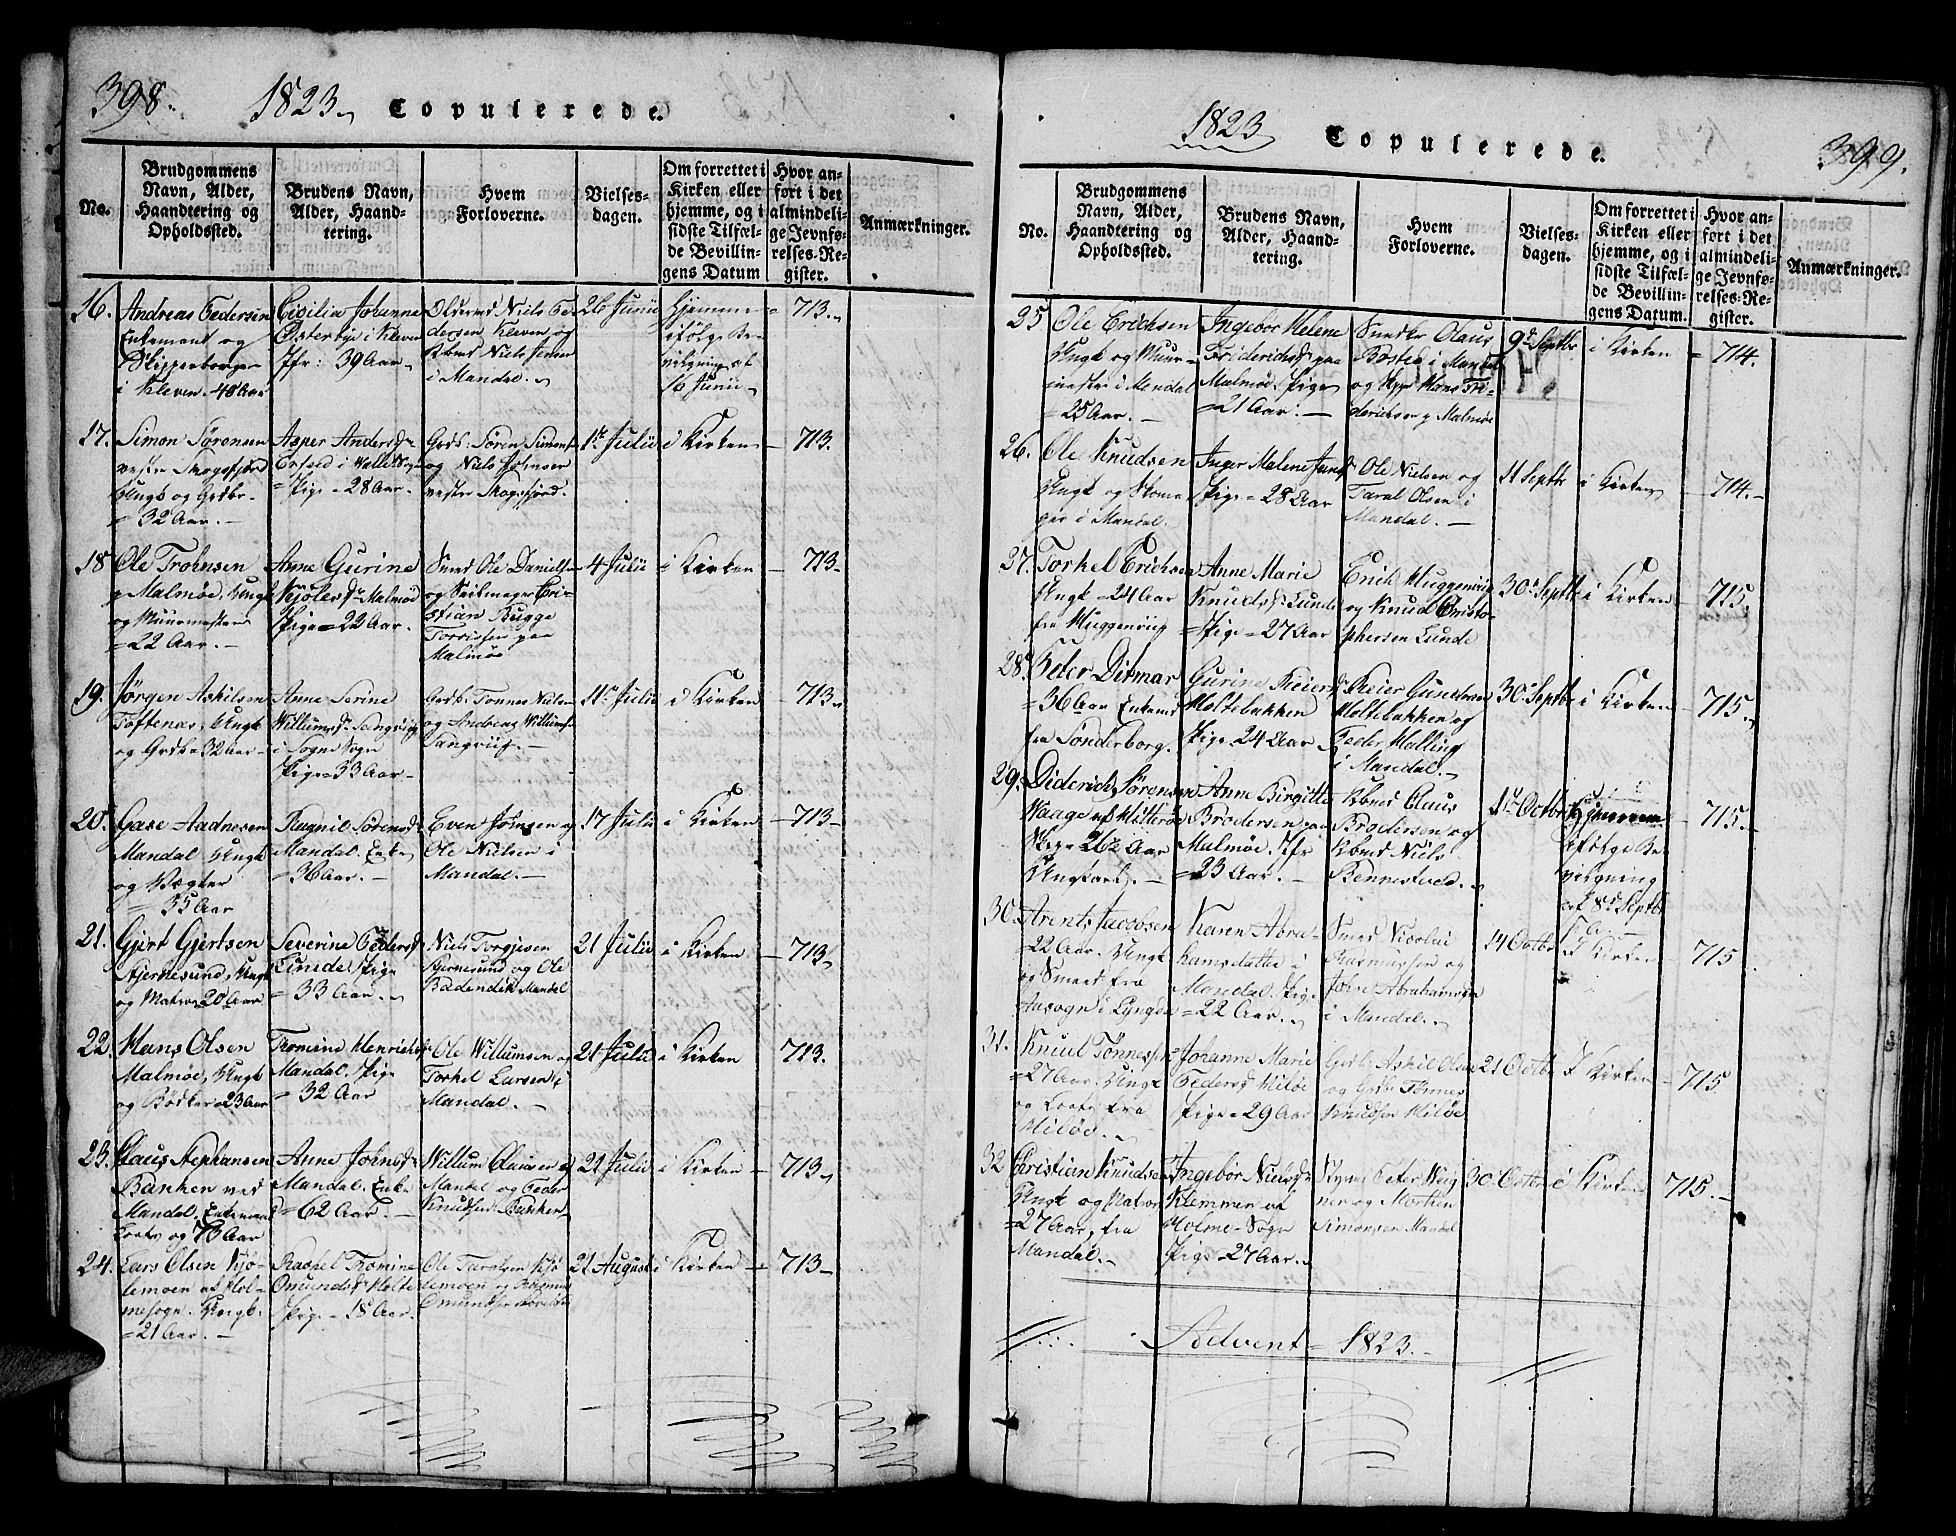 398.
1823.
Copulerede.
No.
Brudgommens
Navn, Alder,
Haandtering og
Opholdssted.
Brudens Navn,
Alder, Haand-
tering.
Hvem
Forloverne.
Vielses-
dagen.
Om forrettet i
Kirken eller
hjemme, og i
sidste Tilfæl-
de Bevillin-
gens Datum
Hvor an-
ført i det
almindeli-
ge Jevnfø-
relses-Re-
gister.
Anmærkninger.
16.
Andreas Pedersen
Enkemand og
Skipperborger
i Kleven - 48 Aar
Cicilia Johanne
Østerbye i Kleven
Jfr: 39 Aar
Niels Pe-
dersen Kleven og
Kbmd Niels Jensen
i Mandal.
26 Junii
Hjemme
ifølge Be-
vilgning af
16 Junii
713.
17.
Simon Sørensen
vestre Skogsfjord
Ungk og Grdbr.
= 32 Aar.
Asper Andersdr
i Halle Sogn
Pige = 28 Aar.
Grdb: Søren Simons.
og Niels Johnsen
vestre Skogsfjord.
1te Julii
i Kirken
713.
18
Ole Tronsen
p Malmøe, Ungk
og Muurmester
= 22 Aar.
Anne Gurine
Malmøe
Pige = 22 Aar.
Smed Ole Daniels.
og Seilmager Cri-
stian Bugge
Torrissen paa
Malmøe
4 Julii
i Kirken
713
19.
Jørgen Askilsen
Toftenæs, Ungk
og Grdbr 32 Aar
Anne Serine
Willumsdr
i Søgne Sogn
Pige = 33 Aar
Grdb: Tønnes Nielsen
og Andreas Willums.
11te Julii
i Kirken
713
20.
Gase Aadnesen
Mandal Ungk
og Vægter
= 35 Aar
Ragnil Sørensdr
Mandal. Enke
= 36 Aar.
Even Johnsen og
Ole Nielsen i
Mandal.
17 Julii
i Kirken
713
21.
Gjert Gjertsen
Stjernesund, Ungk
og Matros 20 Aar
Severine Pedersdr
Lunde Pige
= 33 Aar.
Niels Torgjesen
Stjernesund og Ole
Badendik Mandal
21 Julii
i Kirken
713
22.
Hans Olsen
Malmøe, Ungk
og Bødker = 23 Aar
Tromine Henrichsdr
Mandal. Pige
= 32 Aar
Ole Willumsen og
Torkel Larsen i
Mandal.
21 Julii
i Kirken
713.
23.
Claus Stephansen
Banken ved
Mandal. Enkemand
Loots og 73 Aar
Anne Johnsdr
Mandal. Enke
= 62 Aar.
Willum Clausen
Mandal og Peder
Knudsen Banken
21 Julii
i Kirken
713
24.
Lars Olsen Kjø-
lemoen af Hol-
mesogn. Ungk.
= 21 Aar.
Rachel Tromine
Omundsdr Holte
Pige - 18 Aar.
Ole Taralsen Kjø
lemoen og
21 August
i Kirken
713
1823
Copulerede.
399.
No.
Brudgommens
Navn, Alder,
Haandtering og
Opholdssted.
Brudens Navn,
Alder, Haand-
tering.
Hvem
Forloverne.
Vielses-
dagen.
Om forrettet i
Kirken eller
hjemme, og i
sidste Tilfæl-
de Bevillin-
gens Datum.
Hvor an-
ført i det
almindeli-
ge Jevnfø-
relses-Re-
gister.
Anmærkninger.
25
Ole Erichsen
Ungk og Muur-
mester i Mandal
= 25 Aar.
Ingebor Helene
Friderichsdr paa
Malmøe, Pige
= 21 Aar.
Snedker Olaus
i Mandal
og Hans Fri-
derichsen p Malmøe
9de Septbr
i Kirken
714.
26.
Ole Knudsen
Ungk og Skoma
ger i Mandal.
Inger Malene
Pige = 28 Aar
Ole Nielsen og
Taral Olsen i
Mandal.
11 Septbr
i Kirken
714.
27.
Torkel Erichsen
Ungk = 24 Aar
fra Huggenviig
Anne Marie
Knudsdr Lunde
Pige = 27 Aar
Erich Huggenviig
og Knud Christo-
phersen Lunde
30 Septbr
i Kirken
715.
28.
Peter Ditmar
= 36 Aar Enkemd
fra Sonderborg.
Gurine Reiersdr
Moltebakken
Pige 24 Aar
Reier Gundersen
Moltebakken og
Peder Halling
i Mandal.
30 Septbr
i Kirken
715.
29.
Diderich Sørensen
Waage af Hitterøe
26½ Aar
Ungkarl.
Anne Birgitte
Brodersen paa
Malmøe. Jfr
= 23 Aar.
Kbmd Claus
Brodersen og
Kbmd Niels
Bennestved.
1te Octbr
Hjemme
ifølge Be-
vilgning
af 8de Septbr
715.
30.
Arent Jacobsen
= 22 Aar. Ungk
og Smed fra
Aasogn i Lyngdal
Karen Abra-
hamsdatter i
Mandal. Pige
= 22 Aar.
Smed Nicolai
Rasmussen og
John Abrahamsen
i Mandal.
14 Octbr
i Kirken
715
31.
Knud Tønnesen
= 27 Aar. Ungk
og Loots fra
Hiløe.
Johanne Marie
Pedersdr Hiløe
Pige = 29 Aar
Grdb: Askil Olsen
og Grdbr Tønnes
Knudsen Hiløe
21 Octbr
i Kirken
715
32
Christian Knudsen
Ungk og Matros
= 27 Aar, fra
Mandal.
Ingebor Nielsdr
Klemmer af
Holme-Sogn
Pige = 27 Aar.
Styrm. Peter Weig
ner og Morthen
Simonsen Mandal
30 Octbr
i Kirken
715.
Advent = 1823.